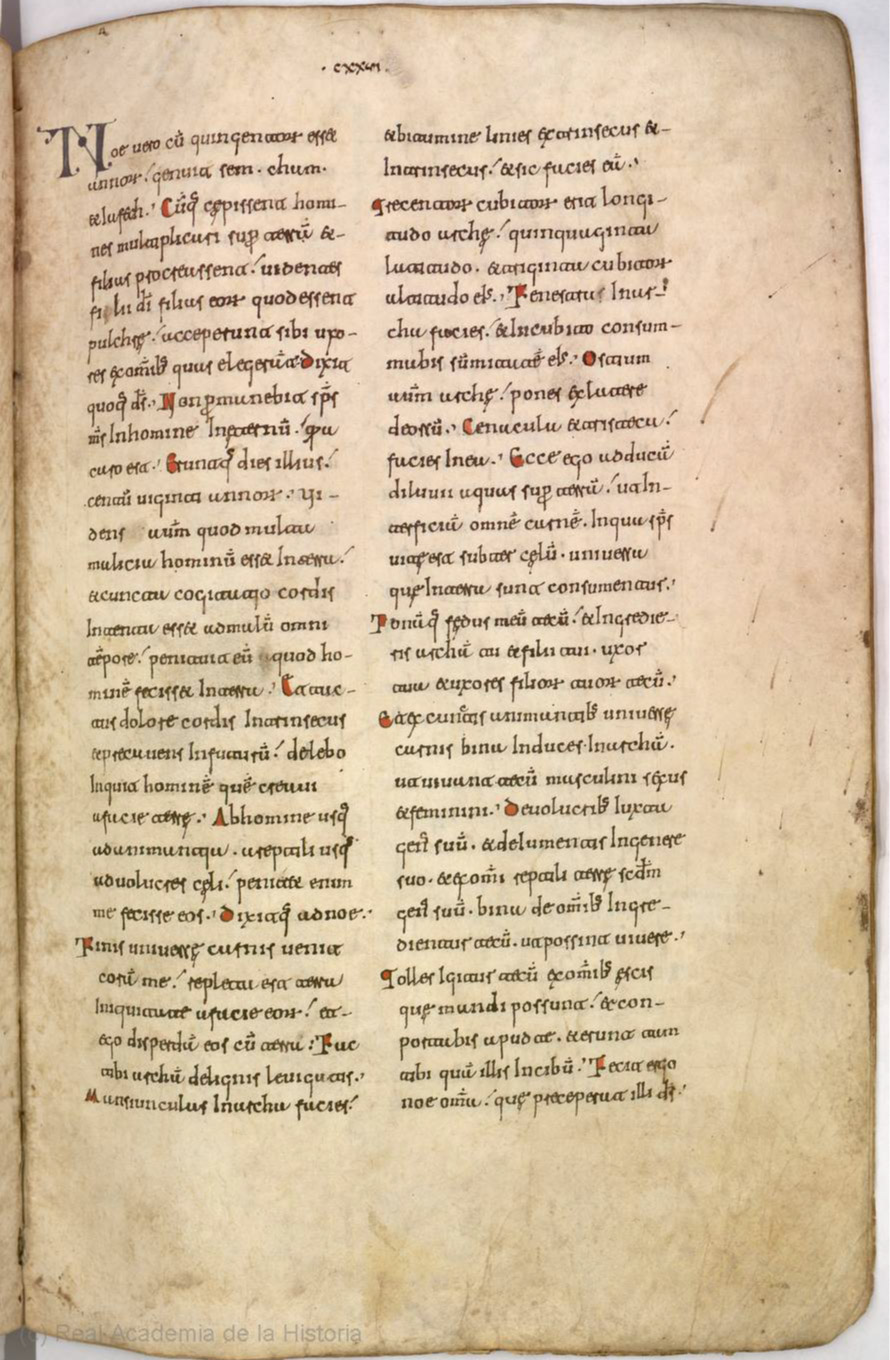 · cxxvi ·
Noe vero cū quingentor esset
annor. genuit sem. cham.
et iafeth. Cūq̄ cępissent homi-
nes multiplicari sup̄ terrā et-
filias procreassent. videntes
filii dī filias eor quod essent
pulchrę. acceperunt sibi uxo-
res ex om̄ibs quas elegerāt. Dixit
quoq̄ ds̄. Non p̄manebit sp̄s
m̄s In homine In eternū. q̄a
caro est. Erunt q̄ dies illius.
centū viginti annor. Vi-
dens   aūm quod multa
malicia hominū esset In terra.
et cuncta cogitatio cordis
Intenta esset ad malū omni
tēpore. penituit eū quod ho-
minē fecisset In terra. Et tac-
tus dolore cordis Intrinsecus
et precavens In futurū. delebo
Inquit hominē quē creavi
a facie terrę. Ab homine usq̄
ad animantia. a reptili usq̄
ad volucres cęli. penitet enim
me fecisse eos. Dixit q̄ ad noe.
Finis universę carnis venit
corā me. repleta est terra
Iniquitate a facie eor. et-
ego disperdā eos cū terra. Fac
tibi archā de lignis levigatis.
Mansiunculas In archa facies.
et bitumine linies extrinsecus et-
Intrinsecus. et sic facies eā.
Trecentor cubitor erit longi-
tudo archę. quinquaginta
latitudo. et triginta cubitor
altitudo ei9. Fenestras In ar-
cha facies. et In cubito consum-
mabis sūmitatē ei9. Ostium
aūm archę. pones ex latere
deorsū. Cenacula et tristeca.
facies In ea. Ecce ego adducā
diluvii aquas sup̄ terrā. ut In-
terficiā omnē carnē. In qua sp̄s
vitę est subter cęlū. universa
quę In terra sunt consumentur.
Ponā q̄ fędus meū tecū. et Ingredie-
ris archā tu et filii tui. uxor
tua et uxores filior tuor tecū.
Et ex cunctis animantibs universę
carnis bina Induces In archā.
ut vivant tecū masculini sexus
et feminini. De volucribs iuxta
gen̄ suū. et de iumentis In genere
suo. et ex om̄i reptili terrę scdm̄
gen̄ suū. bina de om̄ibs Ingre-
dientur tecū. ut possint vivere.
Tolles Igitur tecū ex om̄ibs escis
quę mandi possunt. et con-
portabis apud te. et erunt tam
tibi quā illis In cibū. Fecit ergo
noe om̄ia. quę preceperat illi ds̄.
(c) Real Academia de la Historia